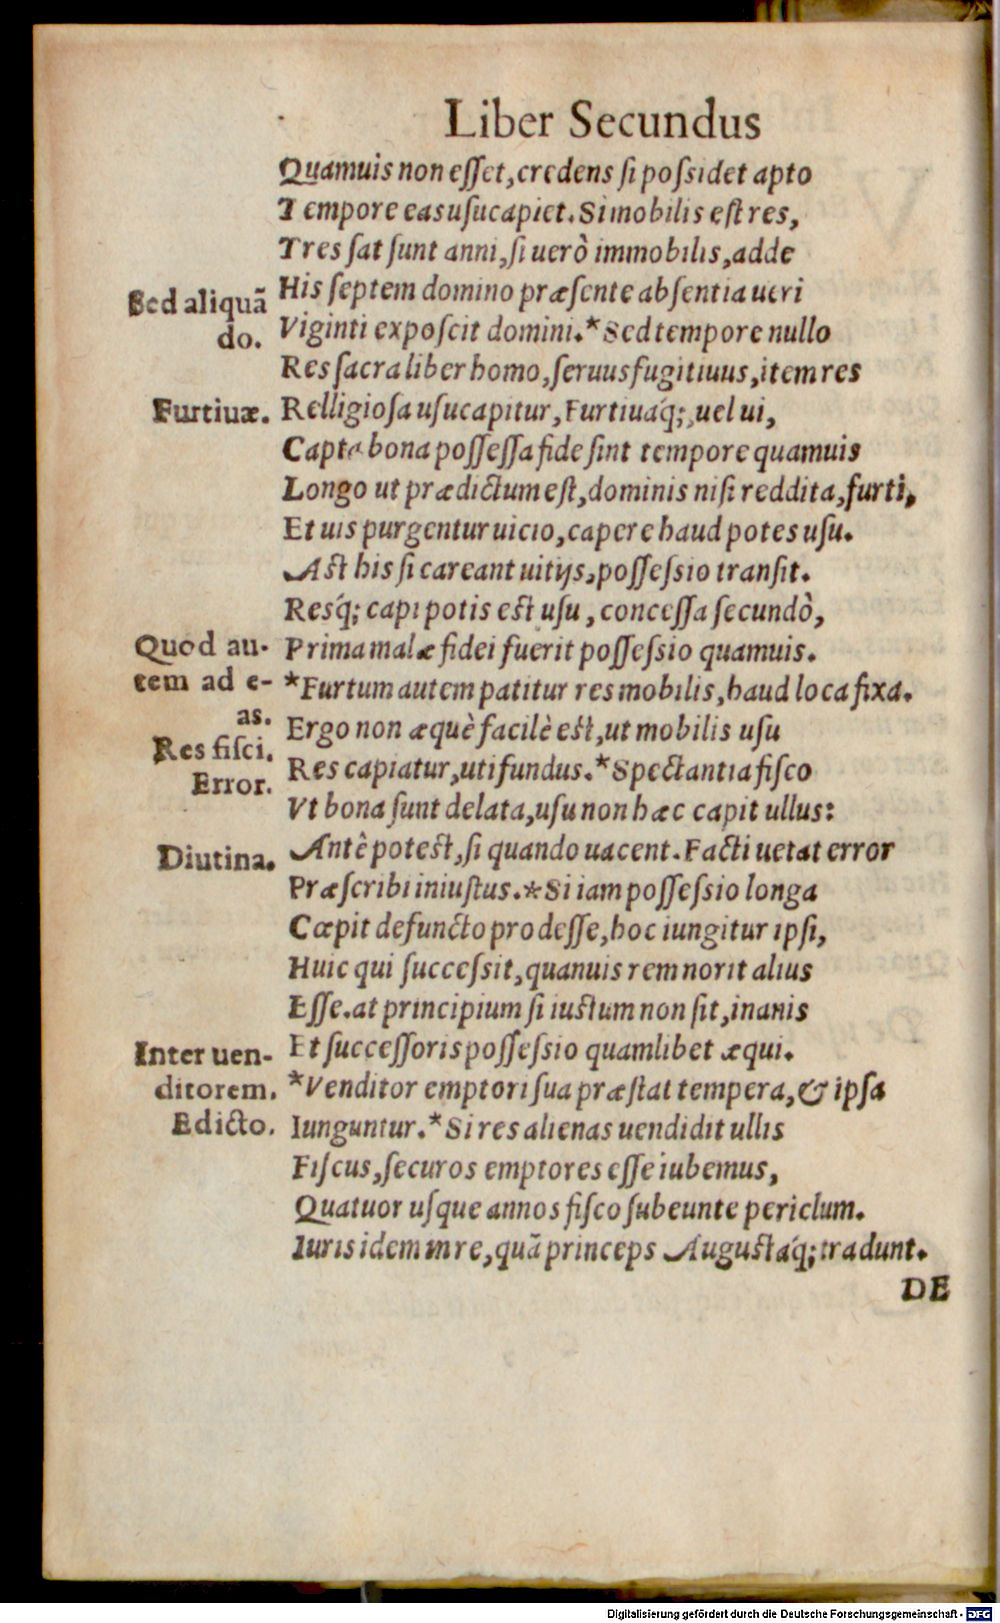 Liber Secundus
Quamuis non esſet, credens ſi poſsidet apto
Tempore eas uſucapiet. Si mobilis eſt res,
Tres ſat ſunt anni, ſi uerò immobilis, adde
Sed aliquã
do.
His ſeptem domino præſente abſentia ueri
Viginti expoſcit domini.* Sed tempore nullo
Res ſacra liber homo, ſeruus fugitiuus, item res
Furtiuæ.
Relligioſa uſucapitur, Furtiuaq́;, uel ui,
Capta bona poſſeſſa fide ſint tempore quamuis
Longo ut prædictum eſt, dominis niſi reddita, furti,
Et uis purgentur uicio, capere haud potes uſu.
Aſt his ſi careant uitijs, poſſeſsio tranſit.
Resq́; capi potis eſt uſu, conceſſa ſecundò,
Quod au-
tem ad e-
as.
Prima malæ fidei fuerit poſſeſsio quamuis.
*Furtum autem patitur res mobilis, haud loca fixa.
Ergo non æquè facilè eſt, ut mobilis uſu
Res fiſci.
Error.
Res capiatur, uti fundus.* Spectantia fiſco
Vt bona ſunt delata, uſu non hæc capit ullus:
Diutina.
Antè poteſt, ſi quando uacent. Facti uetat error
Præſcribi iniuſtus.* Si iam poſſeſsio longa
Cœpit defuncto prodeſſe, hoc iungitur ipſi,
Huic qui ſucceſsit, quanuis rem norit alius
Eſſe. at principium ſi iuſtum non ſit, inanis
Inter uen-
ditorem.
Edicto.
Et ſucceſſoris poſſeſsio quamlibet æqui.
*Venditor emptori ſua præſtat tempera, & ipſa
Iunguntur.* Si res alienas uendidit ullis
Fiſcus, ſecuros emptores eſſe iubemus,
Quatuor uſque annos fiſco ſubeunte periclum.
Iuris idem in re, quã princeps Auguſtaq́; tradunt.
DE
Digitalisierung gefördert durch die Deutsche Forschungsgemeinschaft - DFG